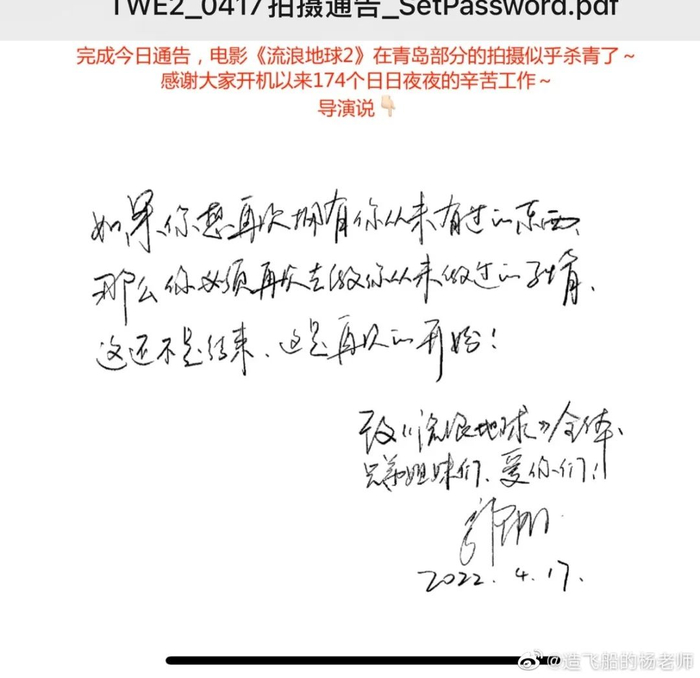 TWE2_0417拍摄通告_SetPassword.pdf
完成今日通告，电影《流浪地球2》在青岛部分的拍摄似乎杀青了～
感谢大家开机以来174个日日夜夜的辛苦工作～
导演说👇🏻
如果你想再次拥有你从来有过的东西、
那么你必须再次去做你从来做过的事情、
这还不是结束、这是再次的开始！
致《流浪地球》全体、
兄弟姐妹们、爱你们！
郭帆
2022.4.17.
@造飞船的杨老师